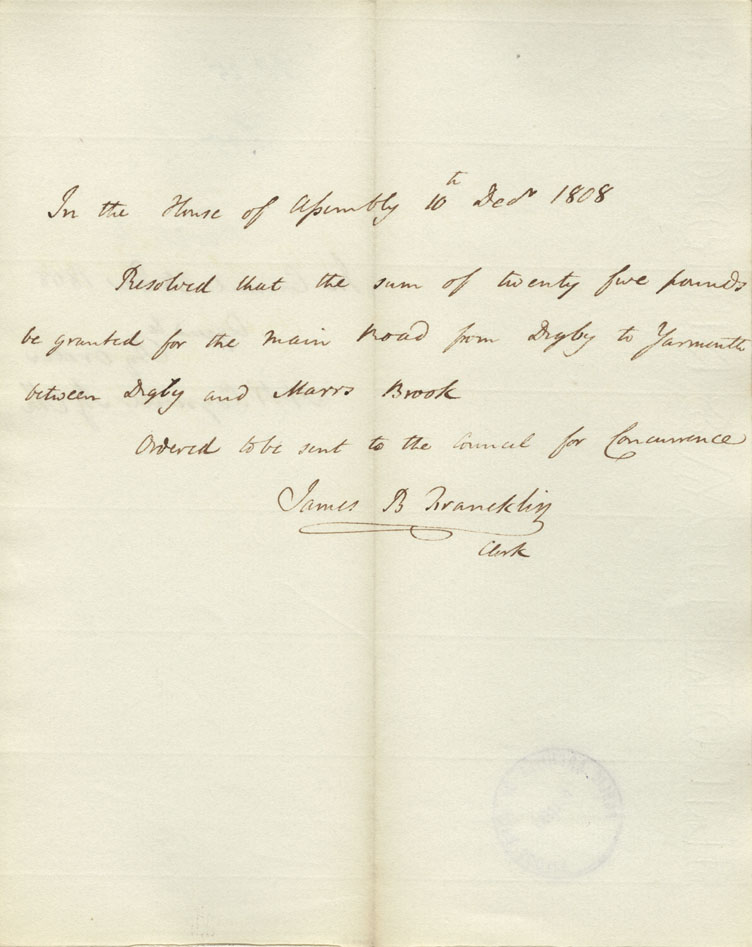 In the House of Assembly 10th Decr 1808
Resolved that the sum of twenty five pounds
be granted for the main Road from Digby to Yarmouth
between Digby and Marrs Brook
Ordered to be sent to the Council for Concurrence
James B Francklin
Clerk